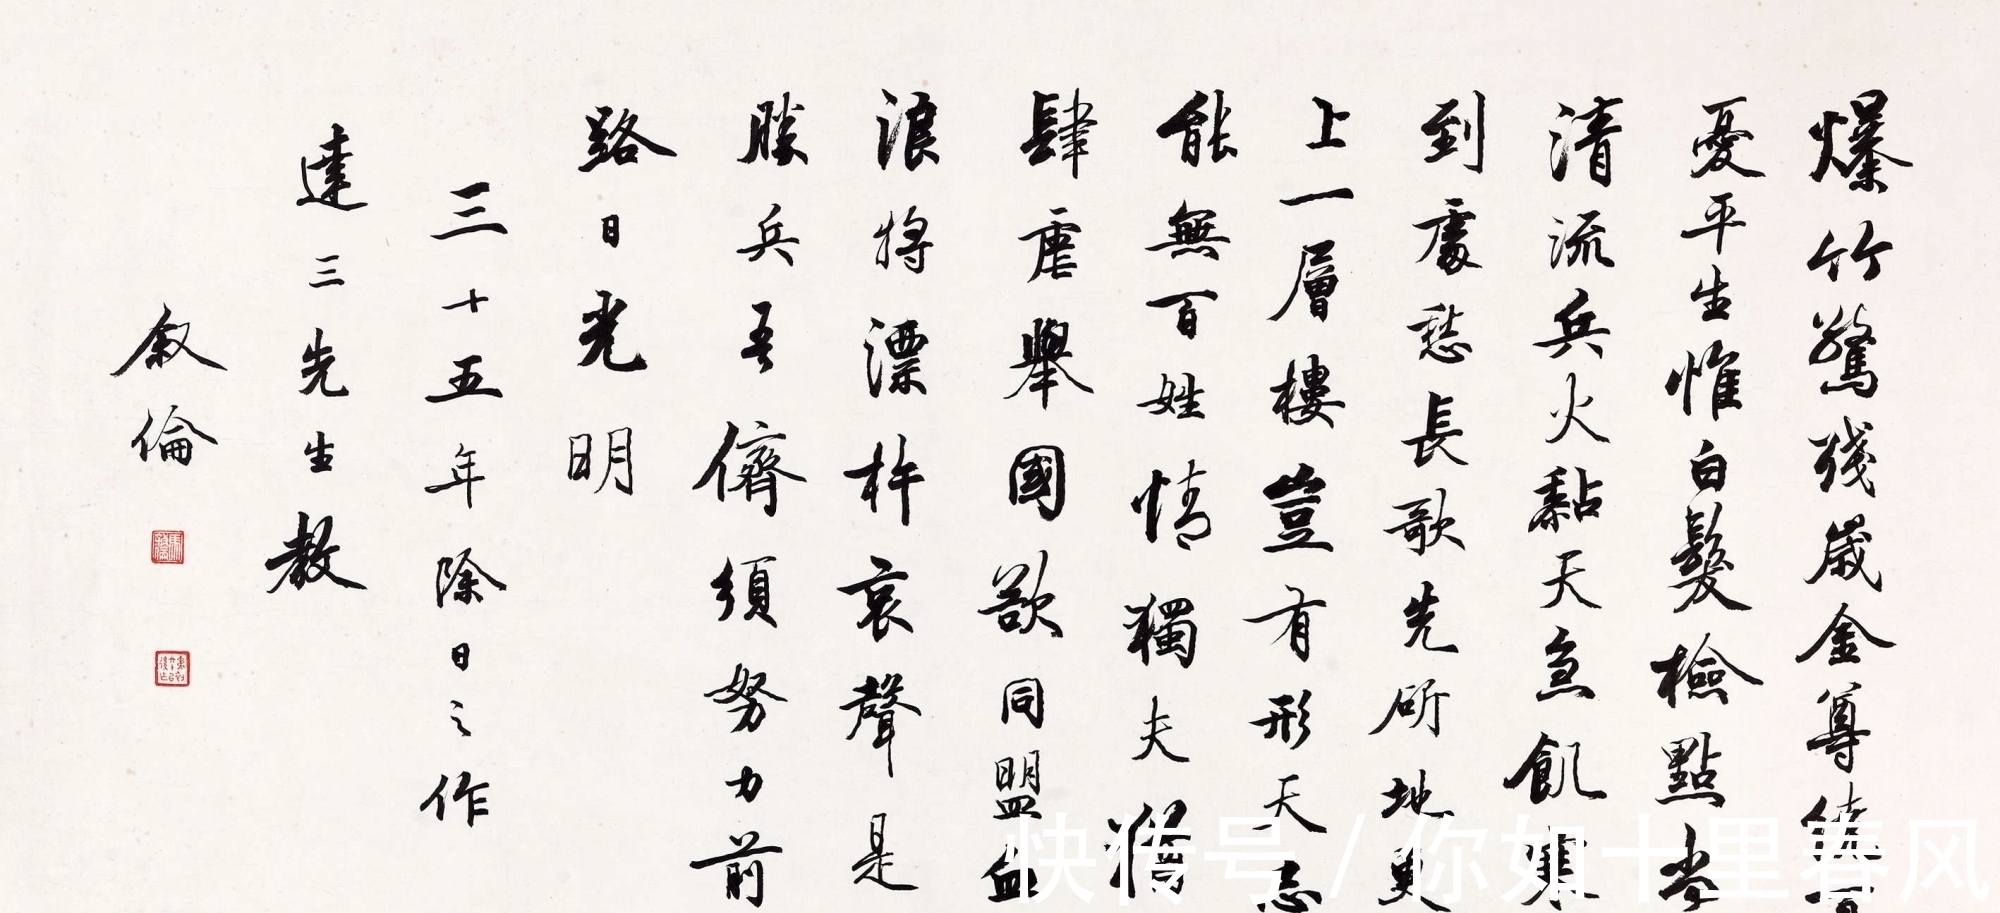 爆竹驚殘歲金尊百
憂平生惟白髮檢點尚
清流兵火黏天急飢寒
到處愁長歌先斫地更
上一層樓豈有形天忌
能無百姓情獨夫猶
肆虐舉國欲同盟血
浪將漂杵哀聲是
勝兵吾儕須努力前
路日光明
三十五年除日之作
達三先生教
敘倫
快传号/你如十里春风